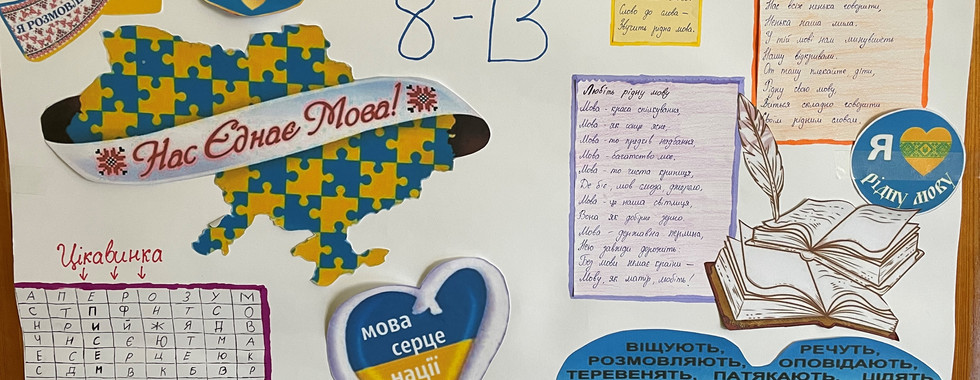 Я РОЗМОВЛ
8-В
Слово до слова –
Звучить рідна мова.
Нас всіх ненька говорити,
Ненька наша мила.
У тій мові нам минувшість
Нашу відкривали.
От тому плекайте, діти,
Рідну свою мову,
складно говорити
Своїм рідним словом.
Нас Єднає Мова!
Любіть рідну мову
Мова - краса спілкування,
Мова - як сонце ясне,
Мова - то предків надбання,
Мова - багатство моє.
Мова - то чиста криниця,
Де б'є, мов сльоза, джерело,
Мова - це наша світлиця,
Вона як добірне зерно.
Мова - державна перлина,
Нею завжди дорожіть:
Без мови немає країни -
Мову, як матір, любіть!
Я
рідну мову
Цікавинка
А П Е Р О З У М
С Т П Ф Н Т С О
Н Р И Й Ж Я Д В
Ч Н С Є Ю Т М А
Е С Е Р Ц Е Ю К
С Д М В К Б В Р
мова
серце
нації
ВІЩУЮТЬ,
РОЗМОВЛЯЮТЬ,
ТЕРЕВЕНЯТЬ,
РЕЧУТЬ,
ОПОВІДАЮТЬ,
ПАТЯКАЮТЬ,